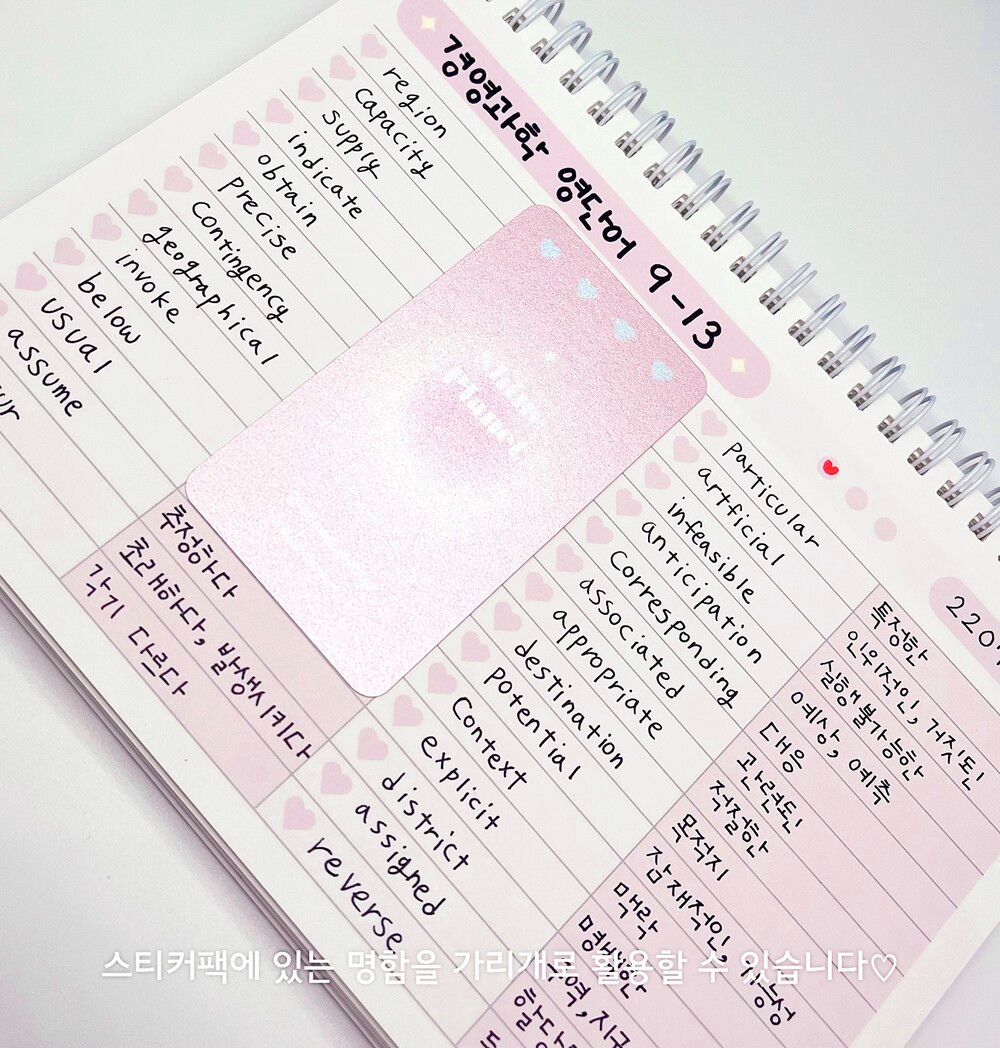 경영과학 영단어 9-13
region
capacity
supply
indicate
obtain
precise
contingency
geographical
invoke
below
usual
assume
추정하다
초래하다, 발생시키다
각기 다르다
Shine
Planet
particular
artficial
infeasible
anticipation
corresponding
associated
appropriate
destination
potential
context
explicit
district
assigned
reverse
특정한
인위적인, 거짓된
실행 불가능한
예상, 예측
대응
관련된
적절한
목적지
잠재적인, 가능성
맥락
명백한
구역, 지구
스티커팩에 있는 명함을 가리개로 활용할 수 있습니다♡